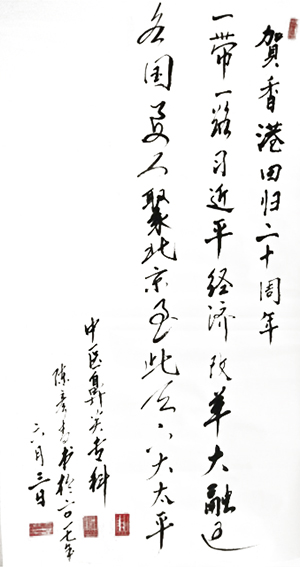 賀香港回归二十周年
一带一路习近平经济改革大融通
各国友人聚北京至此天下大太平
中医鼻炎专科
陈 书于二〇一七年
六月三日